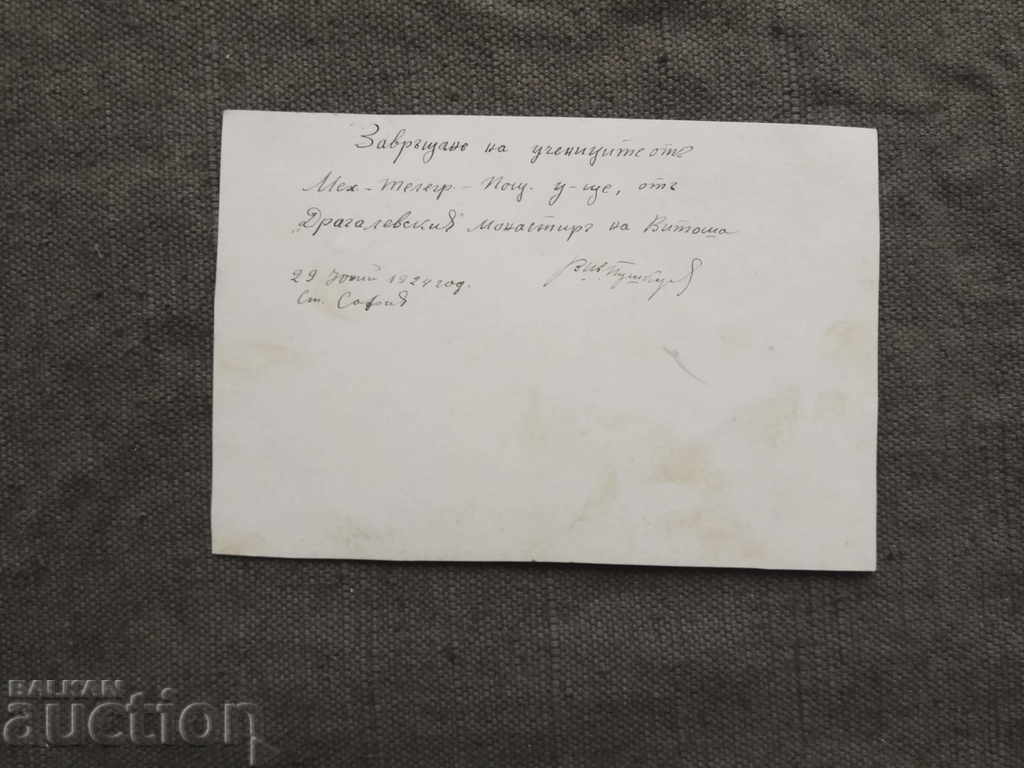 Завръщане на учениците отъ
Мех-телегр.-Пощ. у-ще, отъ
Драгалевския монастиръ на Витоша
29 Юний 1924 год.
Ст. София
BALKAN
auction